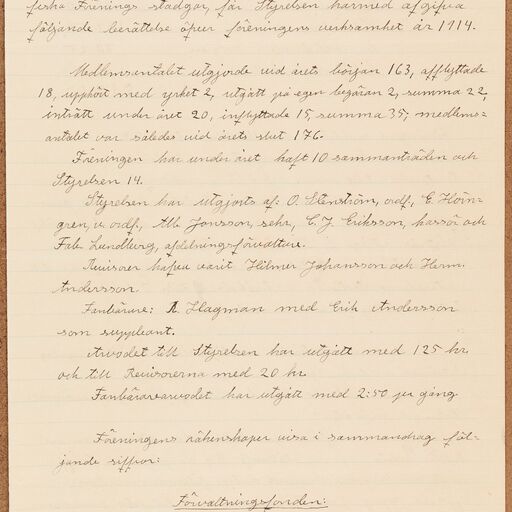 fiska Förenings stadgar, får Styrelsen härmed afgifva
följande berättelse öfver föreningens verksamhet år 1914.
Medlemsantalet utgjorde vid årets början 163, afflyttade
18, upphört med yrket 2, utgått på egen begäran 2, summa 22,
inträtt under året 20, inflyttade 15, summa 35; medlems=
antalet var således vid årets slut 176.
Föreningen har under året haft 10 sammanträden och
Styrelsen 14.
Styrelsen har utgjorts af: O. Stenström, ordf., E. Hörn-
gren, v. ordf., Alb. Jonsson, sekr., C. J. Eriksson, kassör och
Fab. Lundberg, afdelningsförvaltare.
Revisorer hafva varit Hilmer Johansson och Herm.
Andersson.
Fanbärare: A. Hagman med Erik Andersson
som suppleant.
Arvodet till Styrelsen har utgått med 125 kr.
och till Revisorerna med 20 kr.
Fanbärarearvodet har utgått med 2:50 pr gång
Föreningens räkenskaper visa i sammandrag föl-
jande siffror:
Förvaltningsfonden: